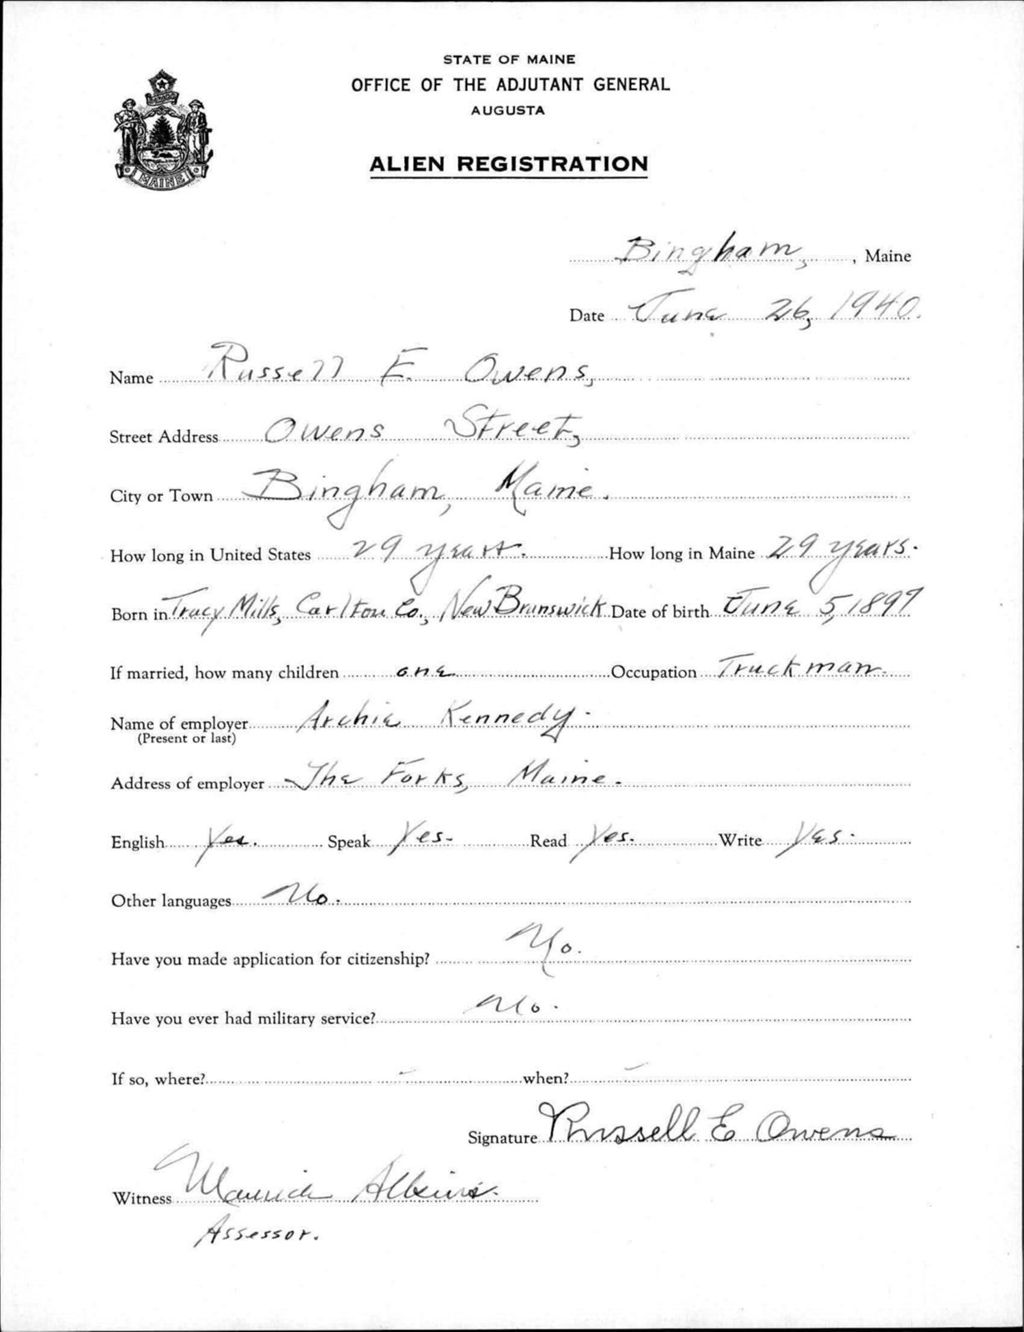 STATE OF MAINE
OFFICE OF THE ADJUTANT GENERAL
AUGUSTA
ALIEN REGISTRATION
MAINE
Bingham, , Maine
Date June 26, 1940.
Name Russell E. Owens,
Street Address Owens Street,
City or Town Bingham, Maine.
How long in United States 29 years. How long in Maine 29 years.
Born in Tracy Mills, Carlton Co., New Brunswick Date of birth June 5, 1897
If married, how many children one Occupation Truckman.
Name of employer Archie Kennedy.
(Present or last)
Address of employer The Forks, Maine.
English Yes. Speak Yes. Read Yes. Write Yes.
Other languages No.
Have you made application for citizenship? No.
Have you ever had military service? No.
If so, where? - when? -
Signature Russell E Owens
Witness Maurice
Assessor.